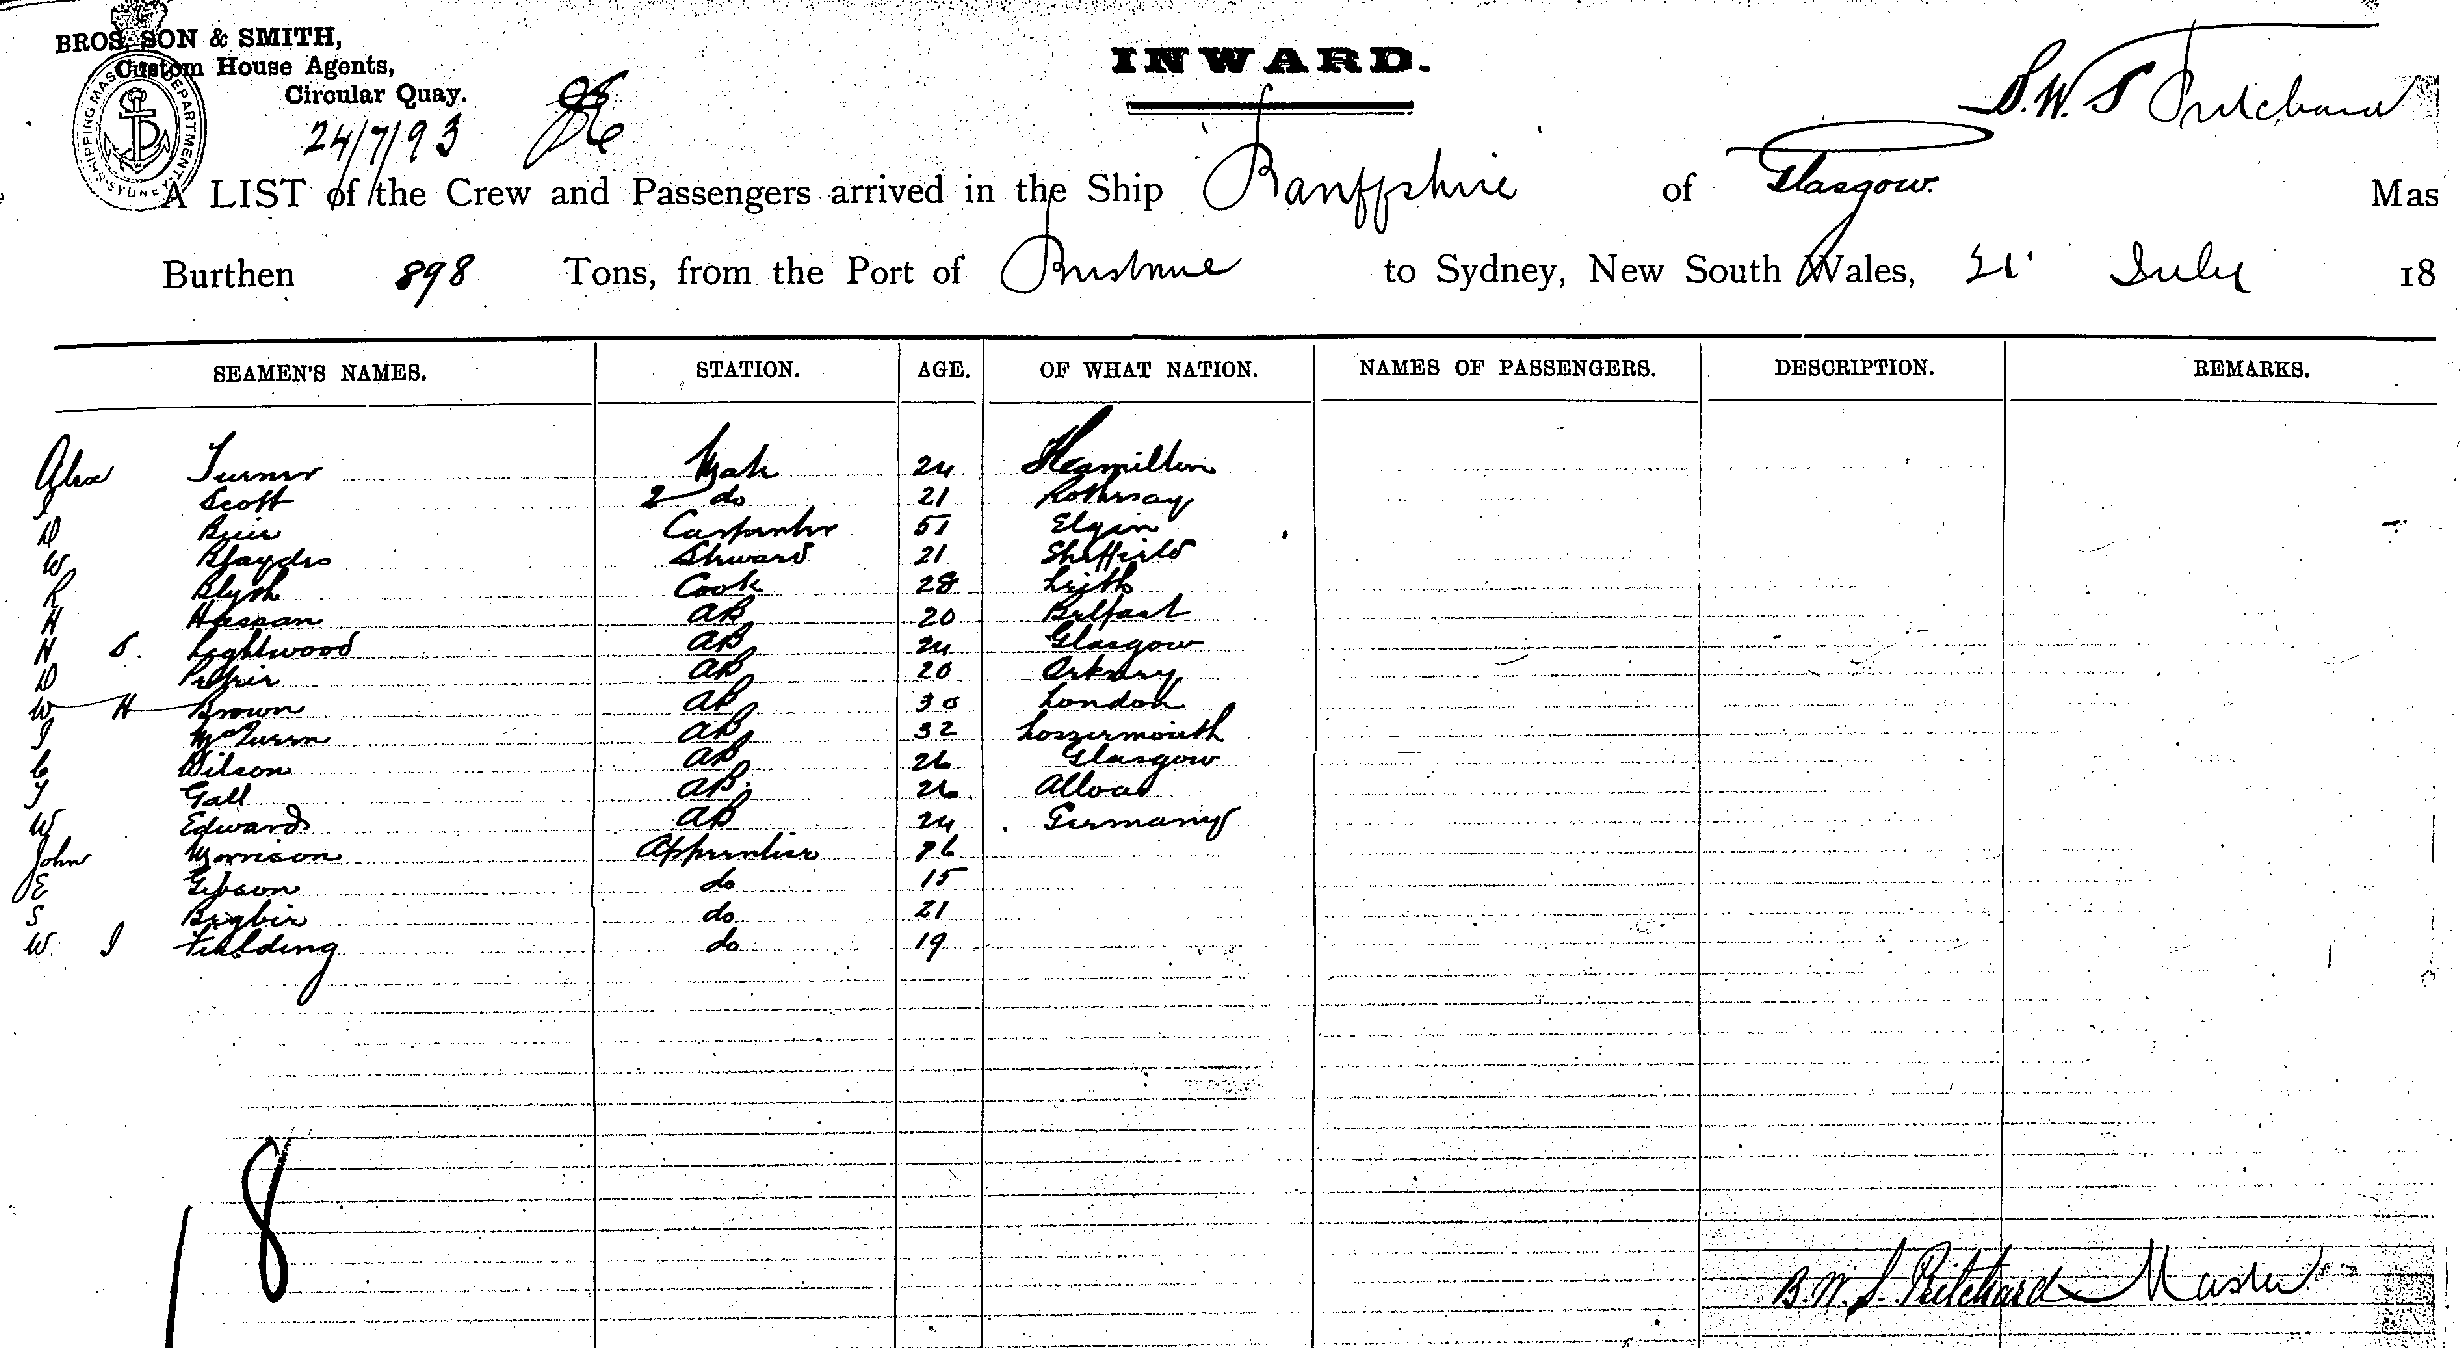 BROS. SON & SMITH,
Custom House Agents,
Circular Quay.
SHIPPING MASTER'S DEPARTMENT SYDNEY
24/7/93
INWARD.
Pritchard
A LIST of the Crew and Passengers arrived in the Ship Banffshire of Glasgow. Mas
Burthen 898 Tons, from the Port of Brisbane to Sydney, New South Wales, 21 July 18
SEAMEN'S NAMES. STATION. AGE. OF WHAT NATION. NAMES OF PASSENGERS. DESCRIPTION. REMARKS.
Alex Turner Mate 24 Hamilton
J Scott 2 do 21 Rothesay
D Carpenter 51 Elgin
W Blaydes Steward 21 Sheffield
R Blyth Cook 28 Leith
H Hassan AB 20 Belfast
H S. Lightwood AB 24 Glasgow
D AB 20 Orkney
W H Brown AB 30 London
J AB 32 Lossiemouth
C Wilson AB 26 Glasgow
J Gall AB 26 Alloa
W Edwards AB 24 Germany
John Morrison Apprentice 16
E Gibson do 15
S Bigbie do 21
W J Fielding do 19
18
B.W.S. Pritchard Master